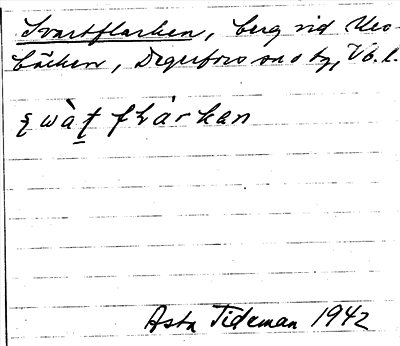 Svartflarken, berg vid Ieo-
bäcken, Degerfors sn o ty, Vb. l.
ʂwàt̲ fʟ́arkan
Asta Tideman 1942